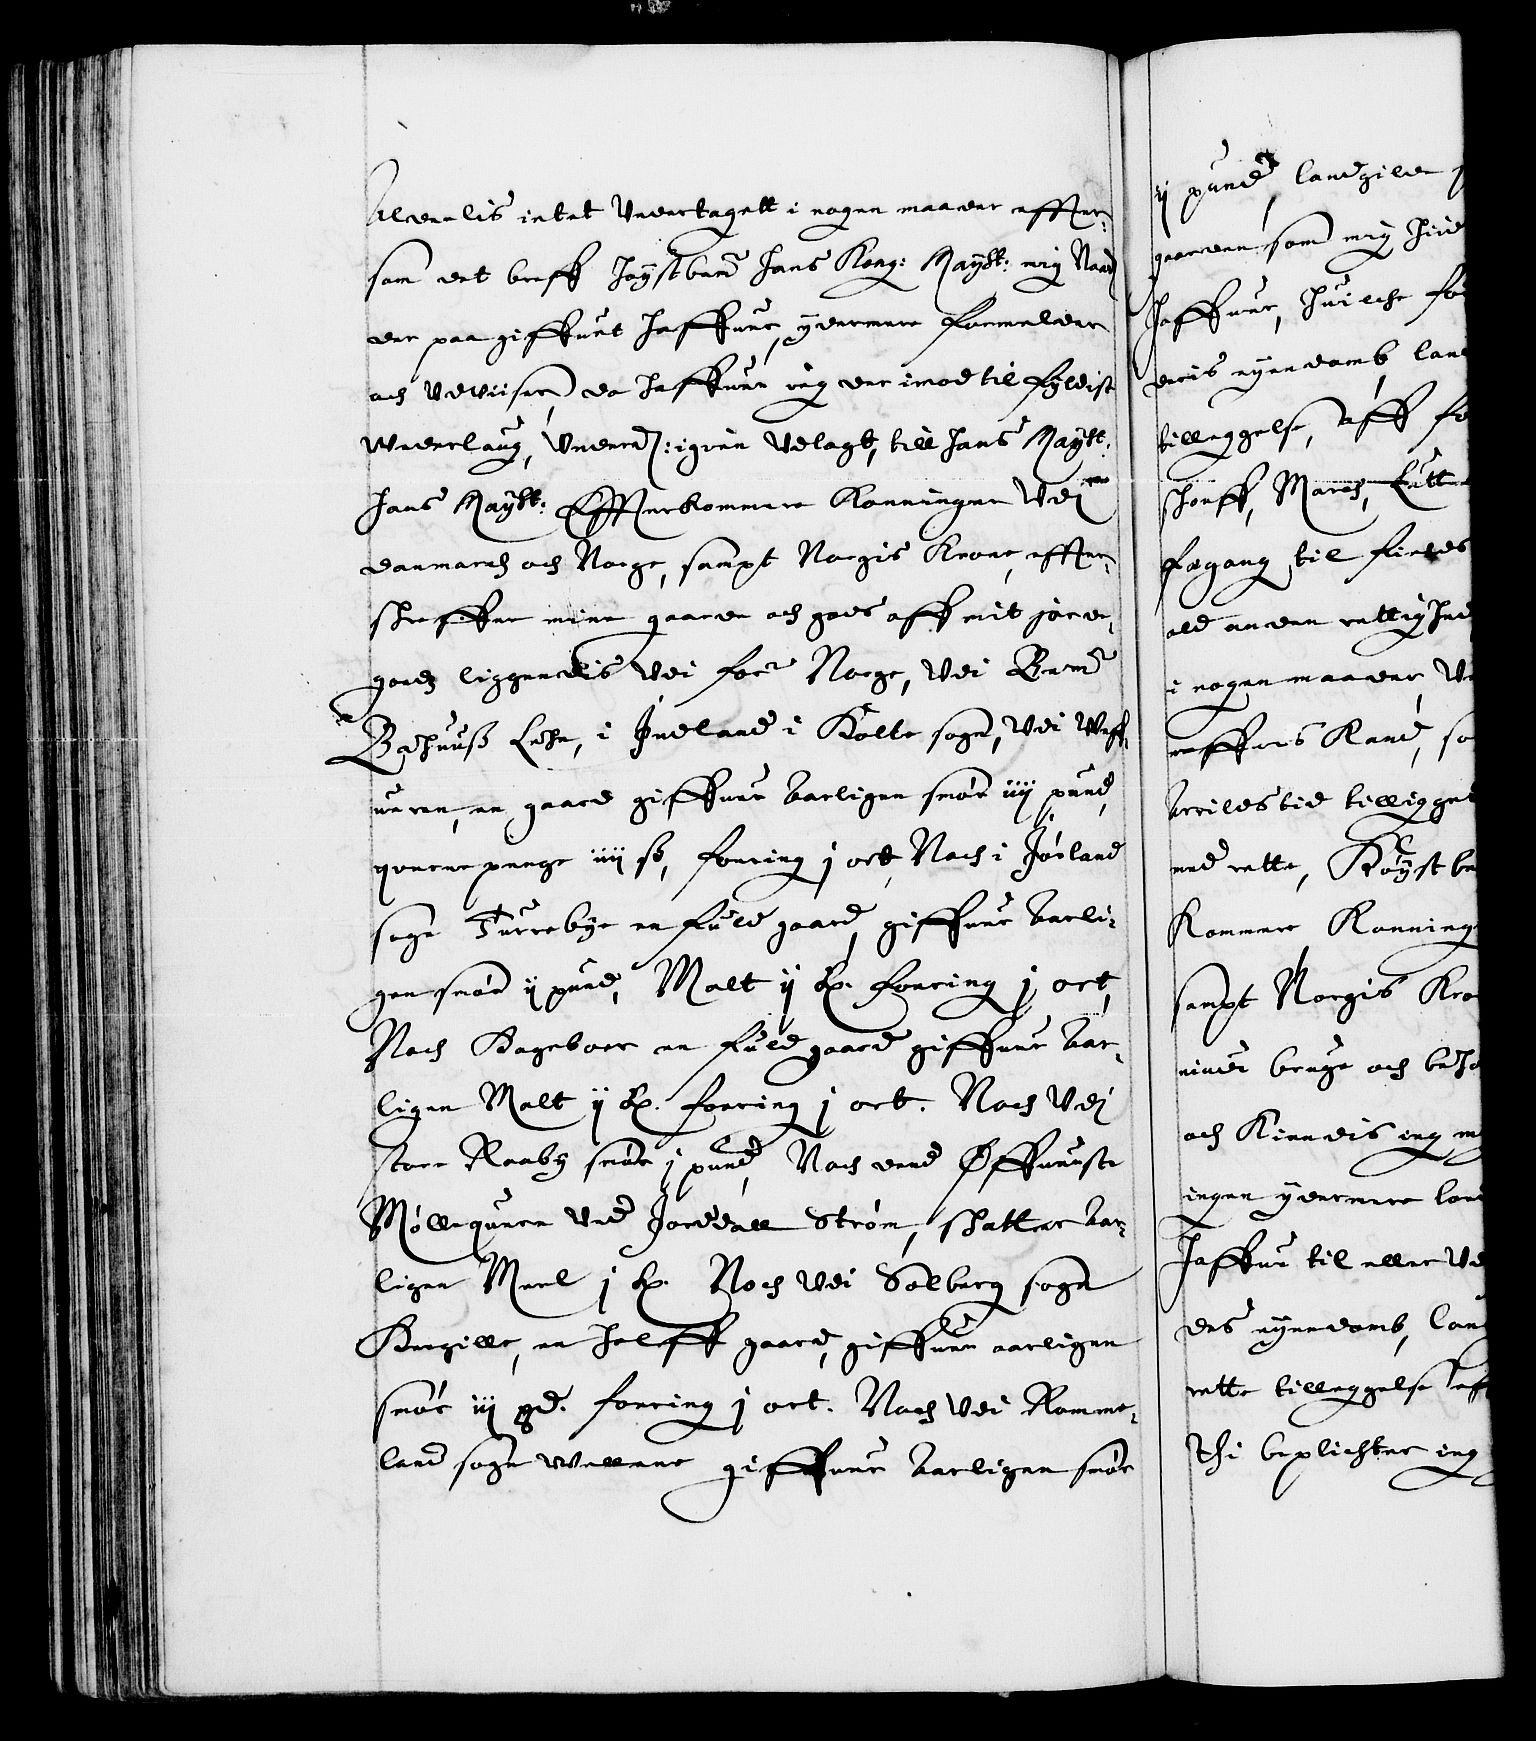 Aldeelis intet Undertagett i nogen maader effter¬
som det breff høystbemt hans Kong: Maytt: mig Naad
der paa giffuet haffuer, ydermere formelder
och Udviiser, da haffuer ieg der imod til fyldist
wederlaug, igien Udlagt, till hans Maytt:
hans Maytt: Effterkommere Konninger Udj
danmarch och Norge, sampt Norgis Krone, effter¬
shreffne mine gaarde och gods aff mit jorde¬
goeds liggendis Udi fort Norge, Udi Bemt
Bahuuß Lehn, i Indland i Kolte sogn, Udi
en gaard giffuer Aarligen smør iiij pund,
penge iiij ß, foering j ort, Noch i Jørland
sogn Turrebye en fuld gaard, giffuer Aarli¬
gen smør ij pund, Malt ij foering j ort,
Noch Bageboer en fuld gaard giffuer Aar¬
ligen Malt ij foering j ort. Noch Udj
store Raaby smør j pund, Noch dend Øffuerste
Mølleqvern Ued Jordall Strøm, shatter Aar¬
ligen Meel j Noch Udi Solberg sogn
en halff gaard, giffuer aarligen
smør iij pd. foering j ort. Noch Udi Romme¬
land sogn giffuer Aarligen smør
ij pund, landgilde
gaarden som mig
haffuer, huilche for
deris eyendomb, land
tilleggelse, aff
shouff, March,
fægang til
ald anden rettighed
i nogen maader,
neffnis Kand, so
Arildstid tilligget
med rette, Høystbe
Kommere Konning
sampt Norgis Kro
bruge och beho
och Kiendis ieg mig
ingen ydermere
haffue til eller Ud
des eyendomb,
rette tilleggelse
Thi beplichter ieg